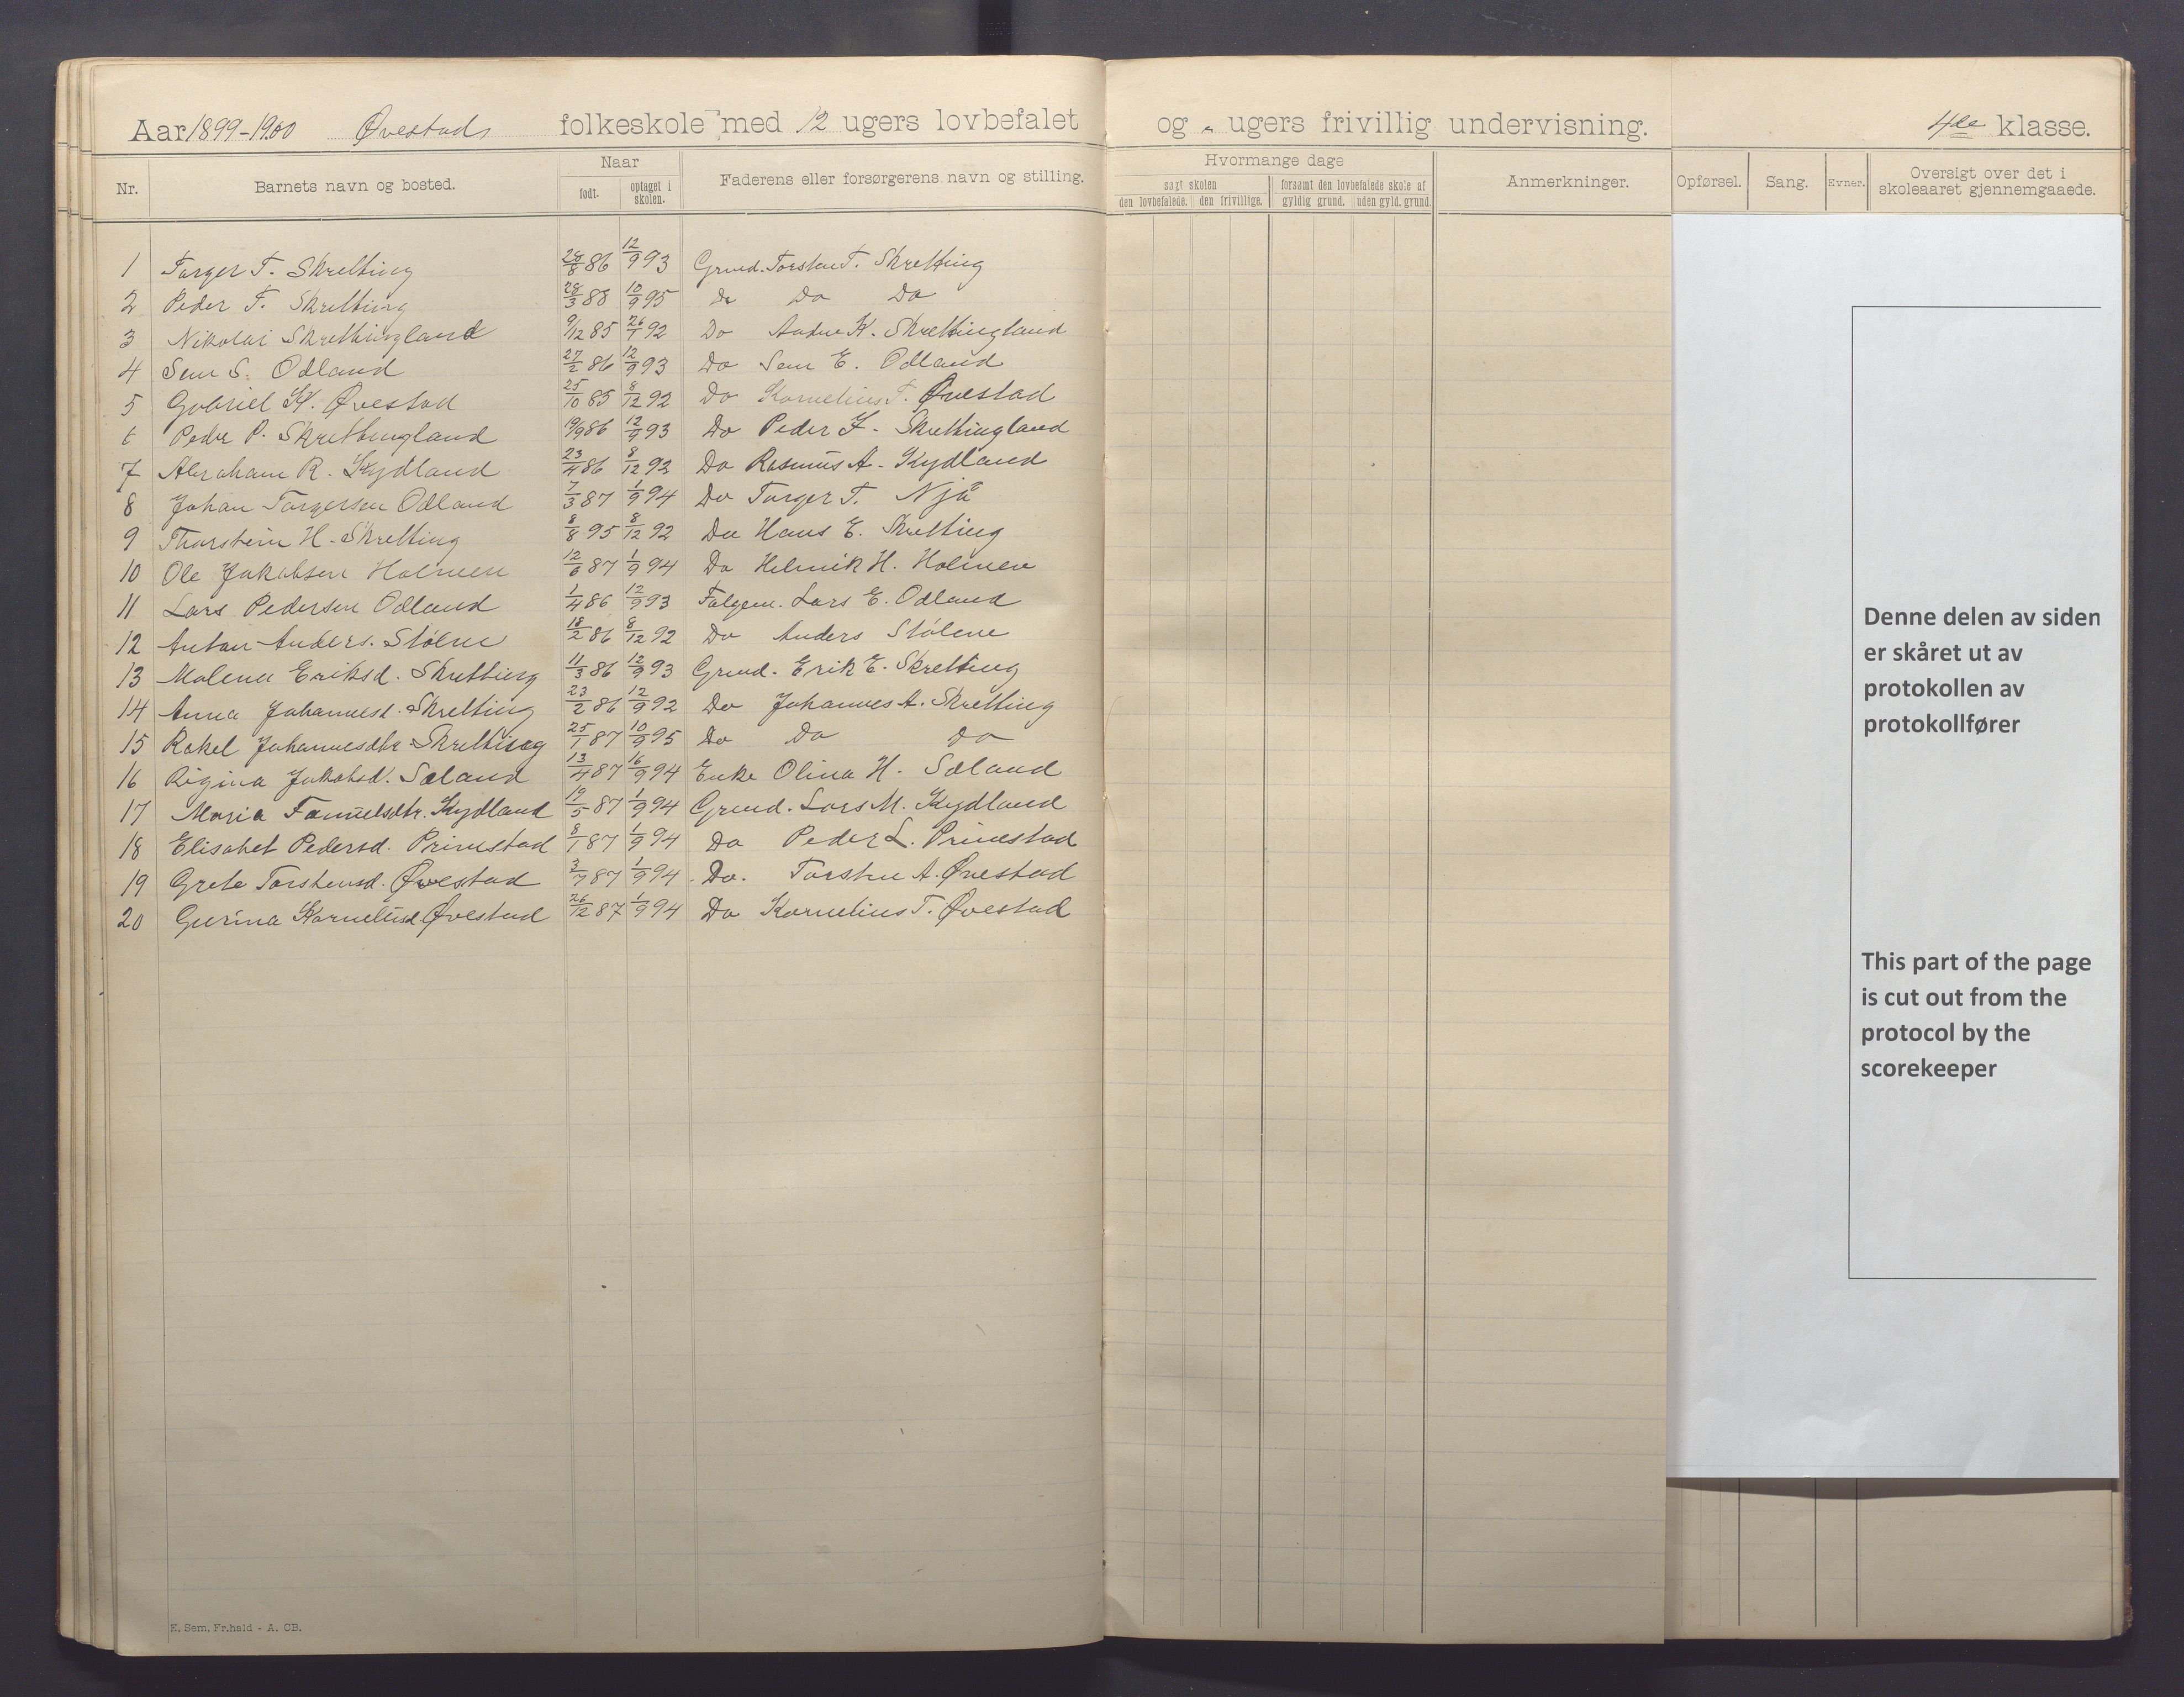 Aar 1899-1900 Øvestads folkeskole med 12 ugers lovbefalet og „ ugers frivillig undervisning. 4de klasse.
Nr. Barnets navn og bosted. Naar født. optaget i skolen. Faderens eller forsørgerens navn og stilling. Hvormange dage søgt skolen den lovbefalede. den frivillige. forsømt den lovbefalede skole af gyldig grund. uden gyld. grund. Anmerkninger. Opførsel. Sang. Evner. Oversigt over det i skoleaaret gjennemgaaede.
1 Torger T. Skretting 28/8 86 12/9 93 Grmd. Torsten T. Skretting
2 Peder T. Skretting 28/3 88 10/9 95 Do Do Do
3 Nikolai Skrettingland 9/12 85 26/1 92 Do K. Skrettingland
4 Sem S. Odland 27/2 86 12/9 93 Do Sem E. Odland
5 Gabriel K. Øvestad 25/10 85 8/12 92 Do Kornelius T. Øvestad
6 Peder P. Skrettingland 19/9 86 12/9 93 Do Peder J. Skrettingland
7 Abraham R. Kydland 23/4 86 8/12 92 Do Rasmus A. Kydland
8 Johan Torgersen Odland 7/3 87 1/9 94 Do Torger T. Njå
9 Thorstein H. Skretting 8/8 95 8/12 92 Do Hans E. Skretting
10 Ole Jakobsen Holmen 12/6 87 1/9 94 Do Helmik H. Holmen
11 Lars Pedersen Odland 1/4 86 12/9 93 Følgem. Lars E. Odland
12 Anton Anders. Stølene 18/2 86 8/12 92 Do Anders Stølene
13 Malena Eriksd. Skretting 11/3 86 12/9 93 Grmd. Erik E. Skretting
14 Anna Johannesd. Skretting 23/2 86 12/9 92 Do Johannes A. Skretting
15 Rakel Johannesdtr. Skretting 25/1 87 10/9 95 Do Do Do
16 Rigina Jakobsd. Søland 13/4 87 16/9 94 Enke Olina H. Søland
17 Maria Kydland 19/5 87 1/9 94 Grmd. Lars M. Kydland
18 Elisabet Pedersd. Primstad 8/1 87 1/9 94 Do Peder L. Primestad
19 Grete Torstensd. Øvestad 3/7 87 1/9 94 Do. Torsten A. Øvestad
20 Gurina Korneliusd. Øvestad 26/12 87 1/9 94 Do Kornelius T. Øvestad
Denne delen av siden
er skåret ut av
protokollen av
protokollfører
This part of the page
is cut out from the
protocol by the
scorekeeper
E. Sem, Fr.hald - A. CB.